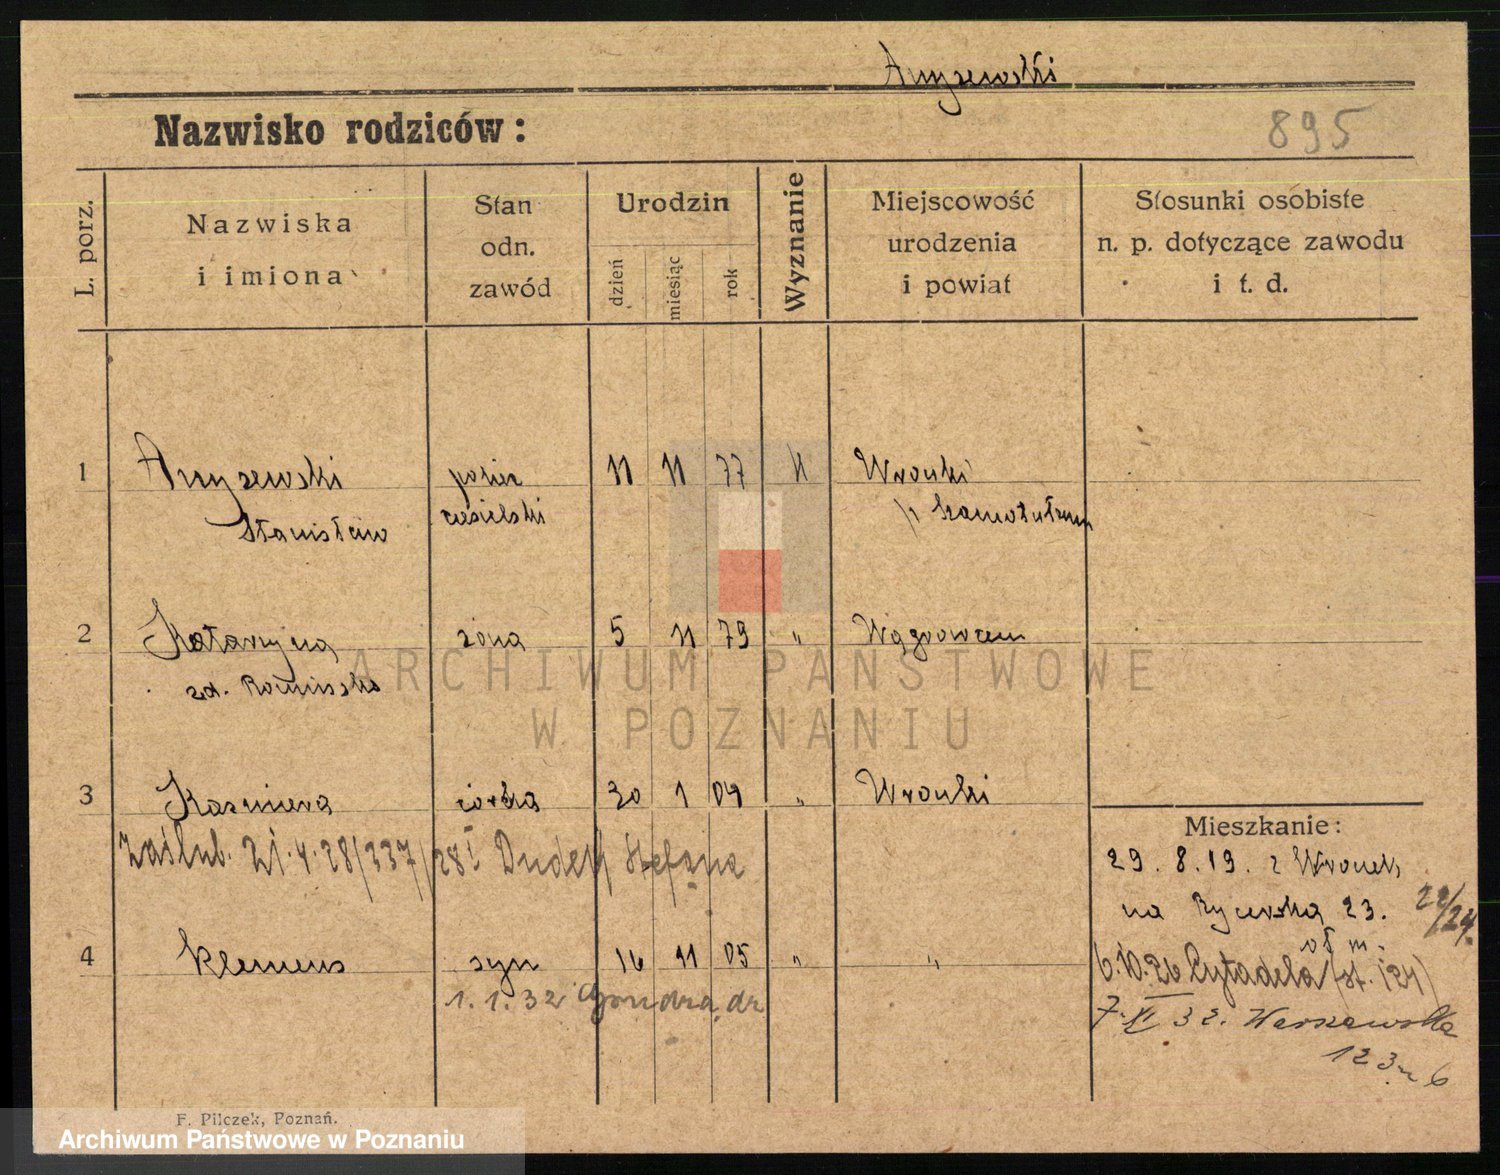 Anyszewski
Nazwisko rodziców:
895
L. porz.
Nazwiska
i imiona
Stan
odn.
zawód
Urodzin
dzień
miesiąc
rok
Wyznanie
Miejscowość
urodzenia
i powiat
Stosunki osobiste
n. p. dotyczące zawodu
i t. d.
1 Anyszewski 11 11 77 K Wronki
Stanisław ciesielski p. Szamotuły
2 Katarzyna żona 5 11 79 " Wągrowiec
zd.
3 Kazmiera córka 30 1 04 " Wronki
zaślub. 21.4.28/337/28 I Dudek Stefana
Mieszkanie:
29. 8. 19. z Wronek
na Rycerska 23. 22/24.
4 Klemens syn 16 11 05 " "
6.10.26 Cytadela
1. 1. 32
7. XI 32. Warszawska
123 m 6
F. Pilczek, Poznań.
ARCHIWUM PAŃSTWOWE
W POZNANIU
Archiwum Państwowe w Poznaniu